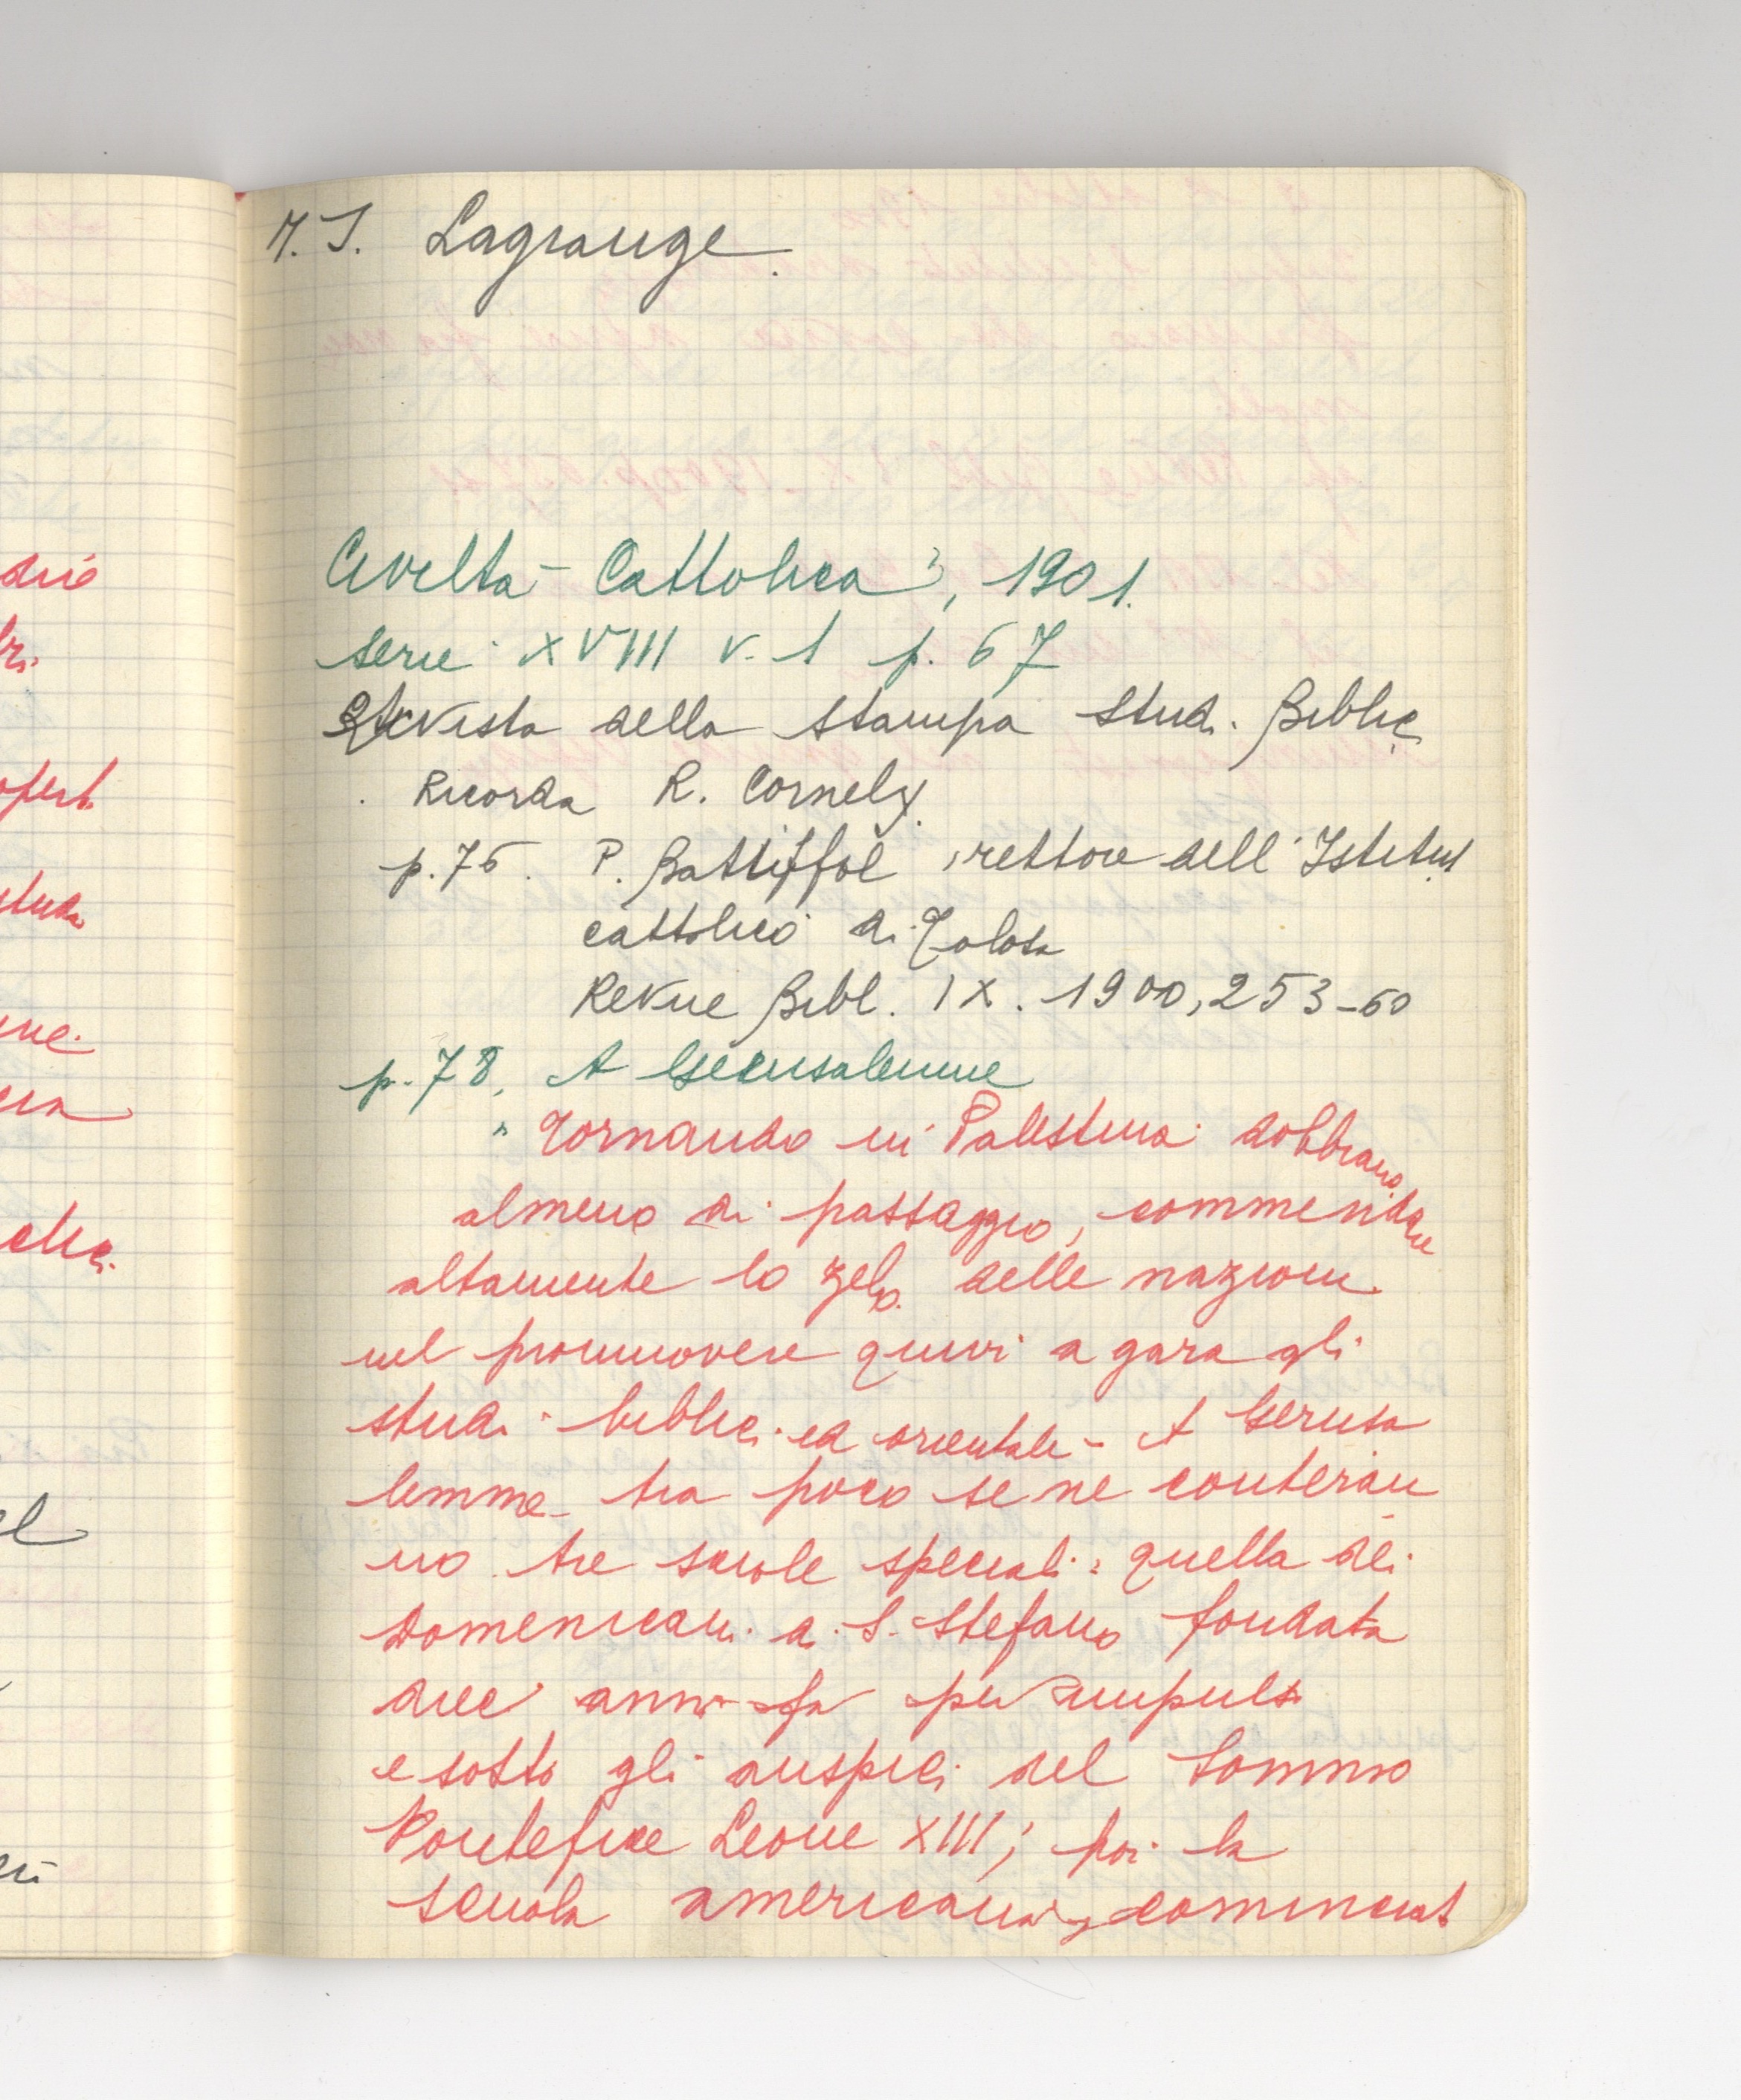 M. J. Lagrange.
Civiltà Cattolica, 1901.
serie XVIII v. 1 p. 67
Rivista della stampa Studi Biblici
Ricorda R. Cornely.
p. 76. P. Battiffol, rettore dell'Istituto
cattolico di Tolosa
Revue Bibl. IX. 1900, 253-60
p. 78, A Gerusalemme
" Tornando in Palestina dobbiamo,
almeno di passaggio, commendare
altamente lo zelo delle nazioni
nel promuovere quivi a gara gli
studi biblici ed orientali - A Gerusa
lemme tra poco se ne conteran
no tre scuole speciali: quella dei
Domenicani a S. Stefano fondata
dieci anni fa per impulso
e sotto gli auspici del Sommo
Pontefice Leone XIII; poi la
scuola americana, cominciat